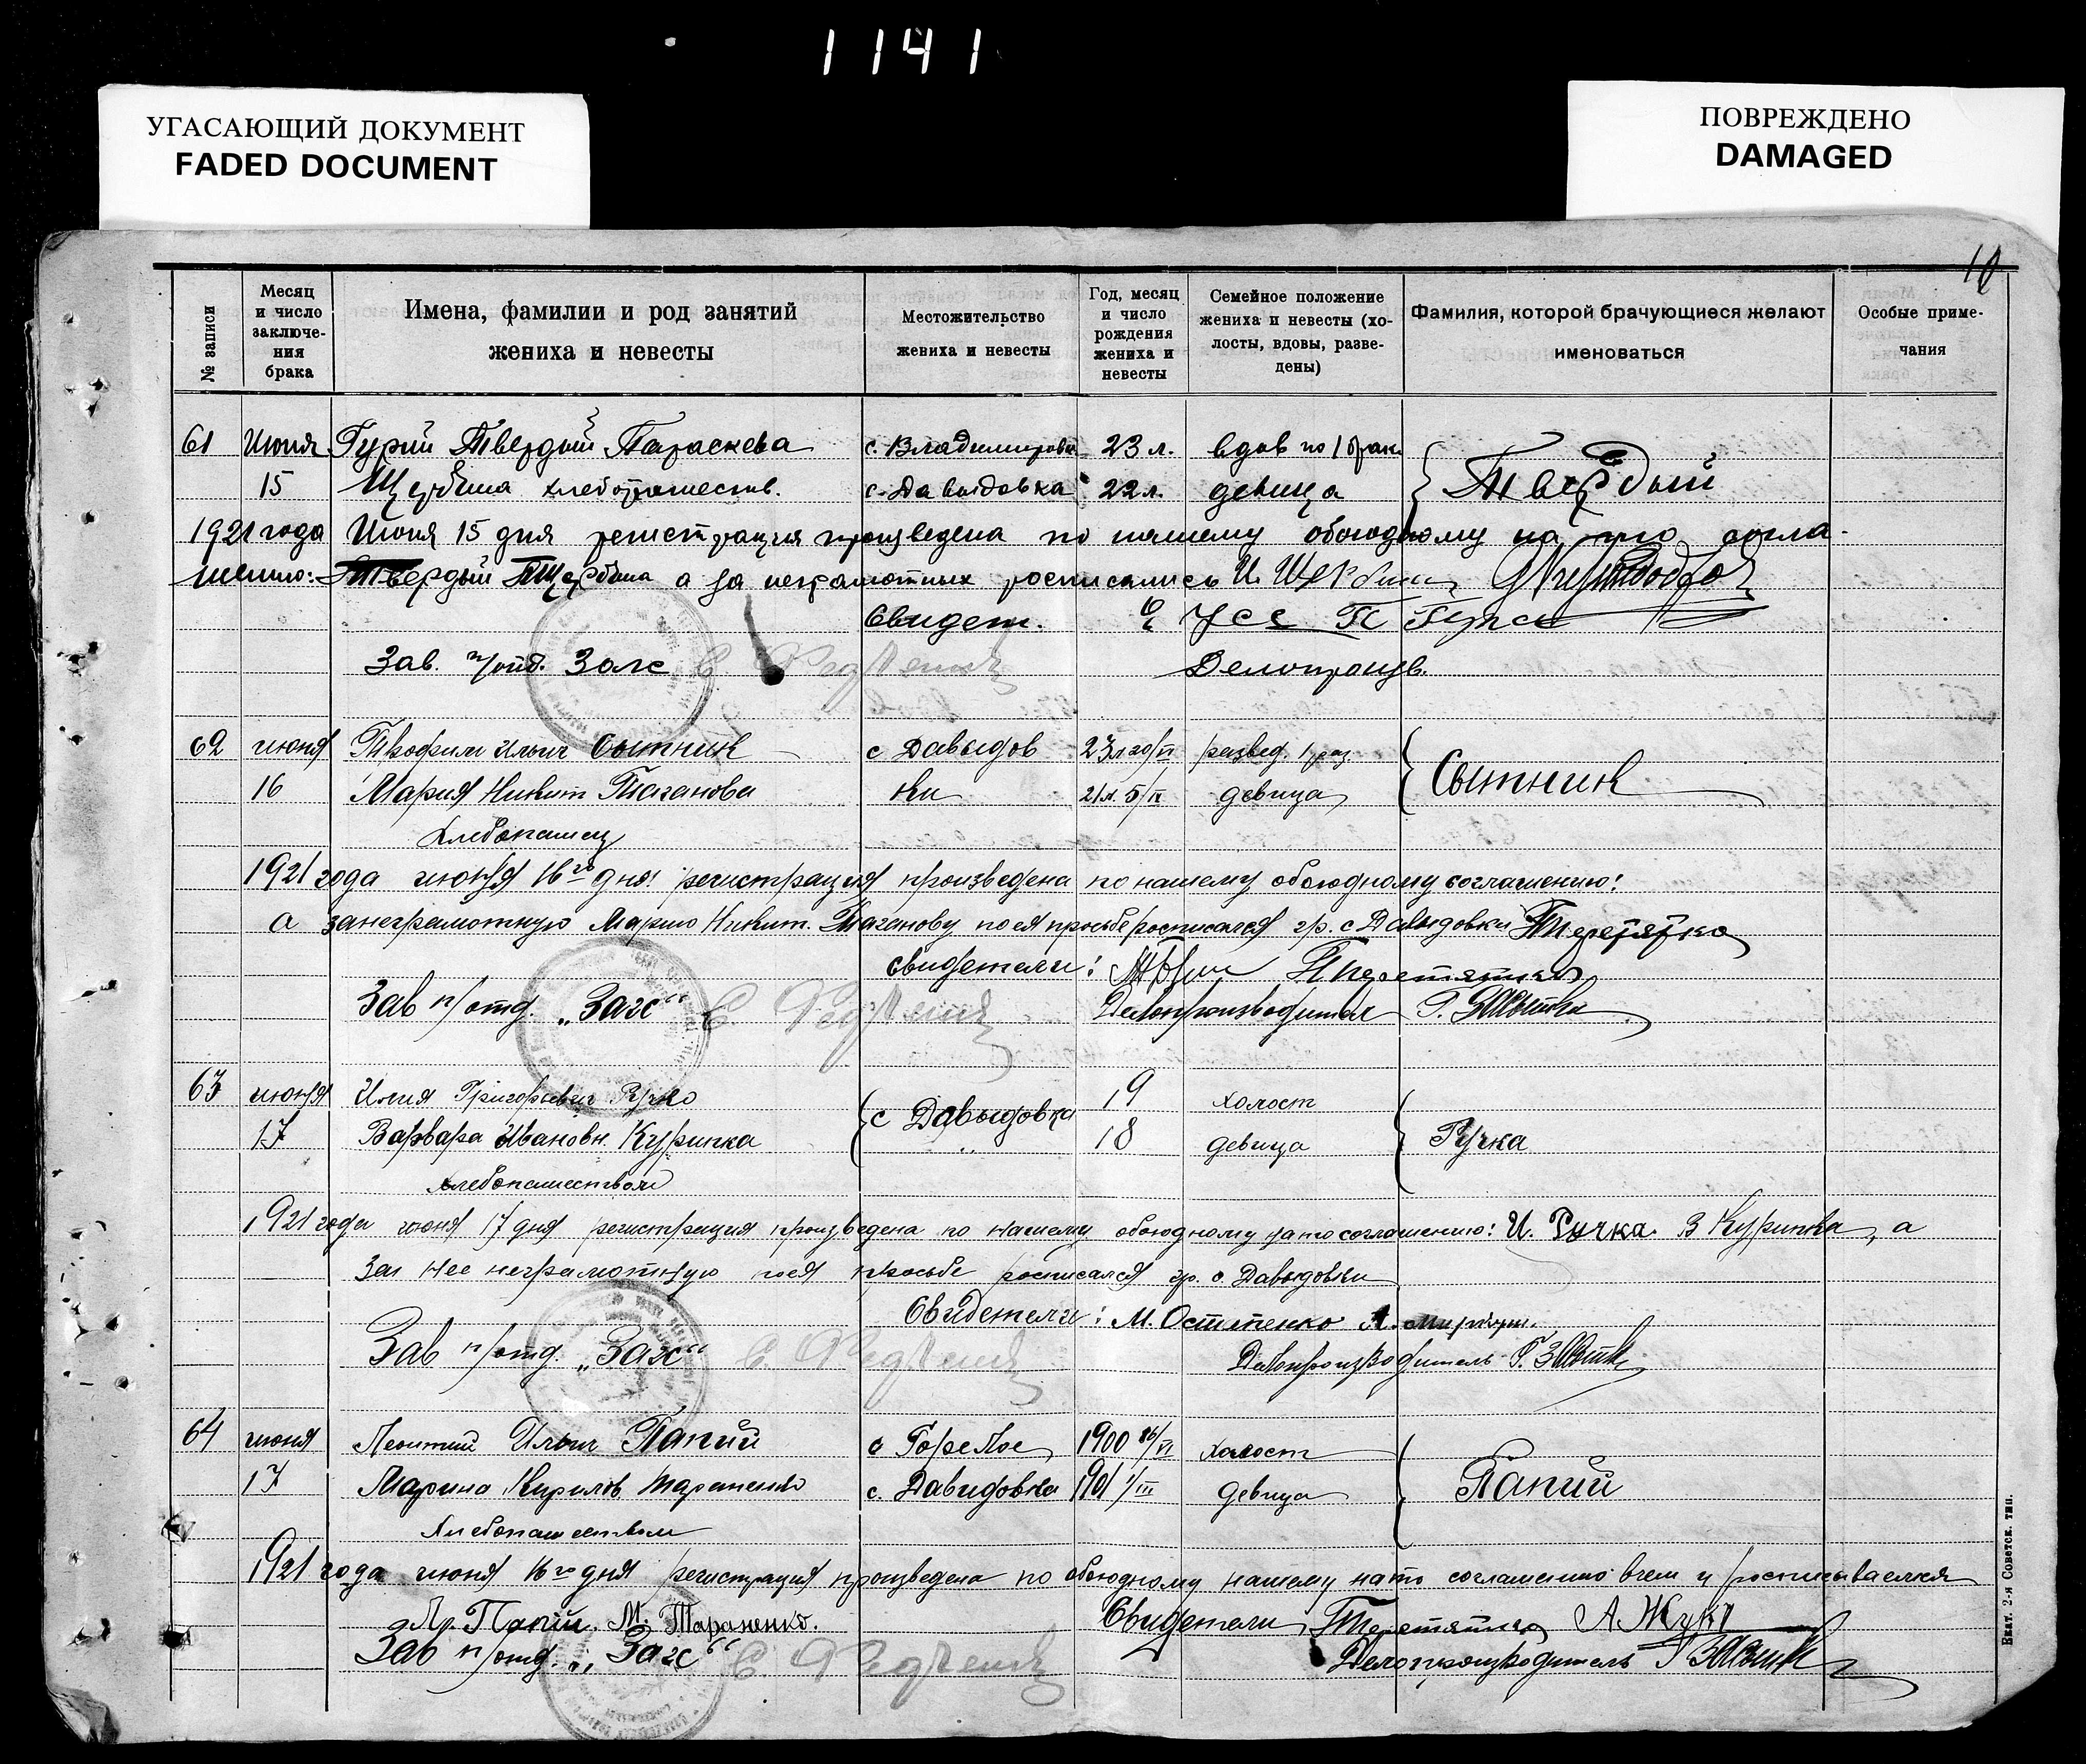 1141
УГАСАЮЩИЙ ДОКУМЕНТ
FADED DOCUMENT
ПОВРЕЖДЕНО
DAMAGED
№ записи
Месяц и число заключе-ния брака
Имена, фамилии и род занятий жениха и невесты
Местожительство жениха и невесты
Год, месяц и число рождения жениха и невесты
Семейное положение жениха и невесты (хо-лосты, вдовы, разве-дены)
Фамилия, которой брачующиеся желают именоваться
Особые приме-чания
61 Июня Гурий Твердый Параскева с. Владимировк 23 л. вдов по 1 брак
15 Щербина хлебопашеств. с. Давыдовка 22 л. девица Твердый
1921 года Июня 15 дня регистрация произведена по нашему обоюдному на то согла-
шению: Твердый Щербина а за неграмотных росписались И. Щербина
Свидет.
Зав. п/отд. Загс Делопроизв.
62 июня Трофим Ильич Сытник с Давыдов 23 л 20/VI развед. 1 раз
16 Мария Никит Таганова ки 21 л. 5/IV девица Сытник
Хлебопашец
1921 года июня 16го дня регистрация произведена по нашему обоюдному соглашению:
а за неграмотную Марию Никит. Таганову по ея просьбе росписался гр. с Давыдовки Перетятко
свидетели: Перетятко
Зав п/отд. „Загс“ Делопроизводитель Г.
63 июня Илия Григорьевич Ручко с Давыдовка 19 холост
17 Варвара Ивановн. Курипка 18 девица Ручка
хлебопашеством
1921 года июня 17 дня регистрация произведена по нашему обоюдному на то соглашению: И. Ручка В Курипка, а
За нее неграмотную по ея просьбе росписался гр. с. Давыдовки
Свидетели: М. Остапенко А.
Зав п/отд. „Загс“ Делопроизводитель Г.
64 июня Леонтий Ильич Папий с Горелое 1900 26/VI холост
17 Марина Кирилов. Тараненко с. Давидовка 1901 1/III девица Папий
Хлебопашеством
1921 года июня 16го дня регистрация произведена по обоюдному нашему на то соглашению в чем и росписываемся
Л. Папій. М. Тараненко. Свидетели Перетятко А. Жук
Зав п/отд. „Загс“ Делопроизводитель Г
Екат. 2-я Советск. тип.